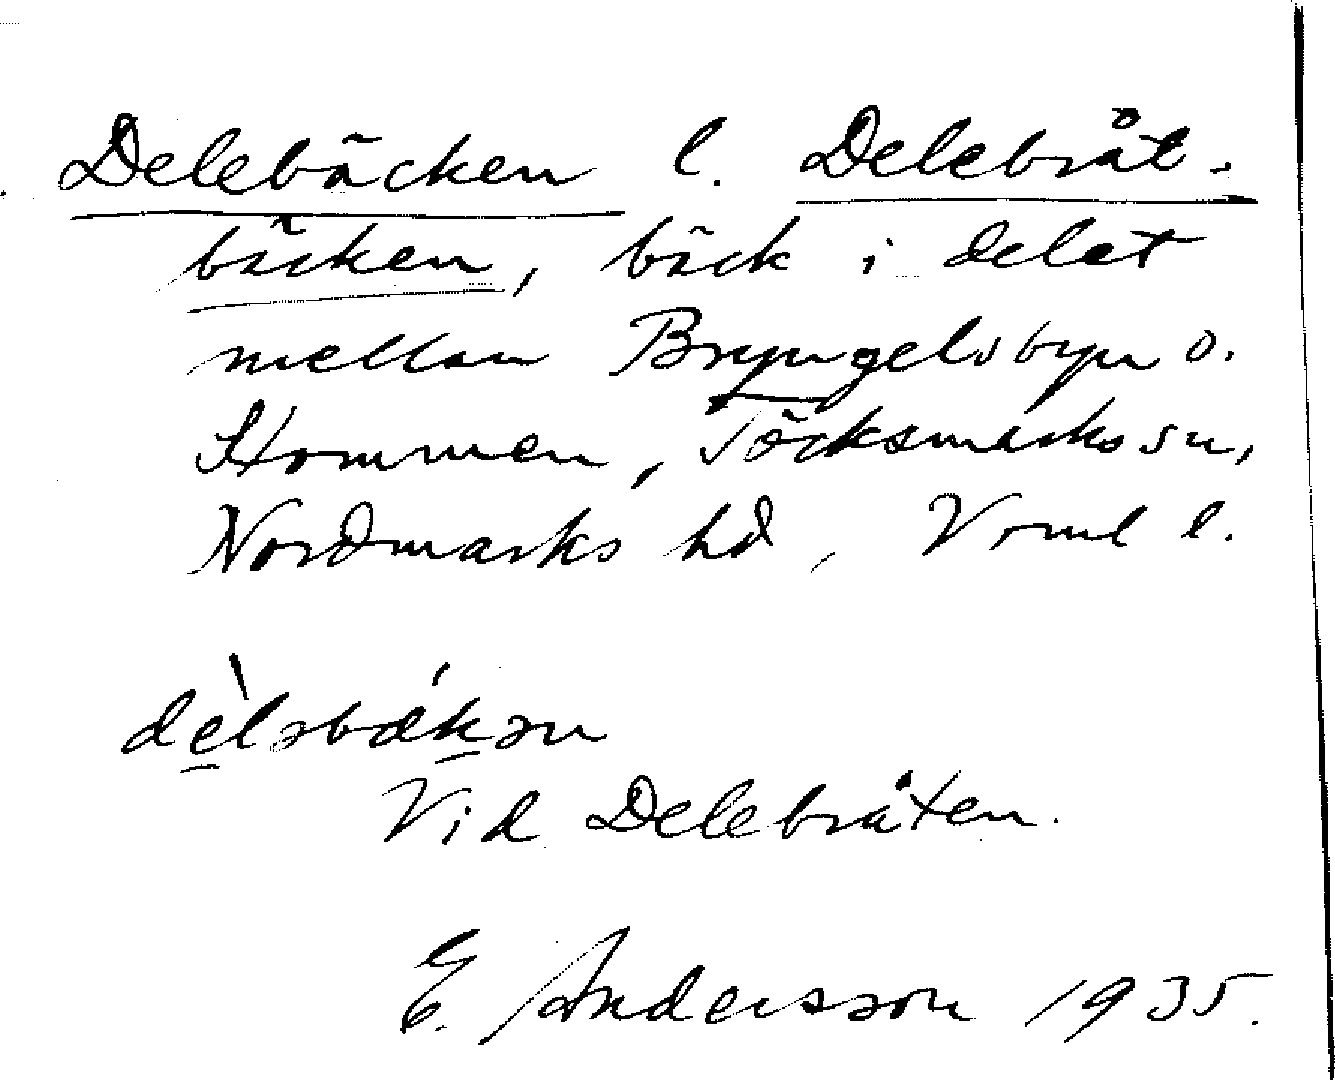 Delebäcken l. Delebråt-
bäcken, bäck i delet
mellan Bryngelsbyn o.
Stommen, Töcksmarks sn,
Nordmarks hd, Vrml l.
dèləbǽkən
Vid Delebråten.
E. Andersson 1935.